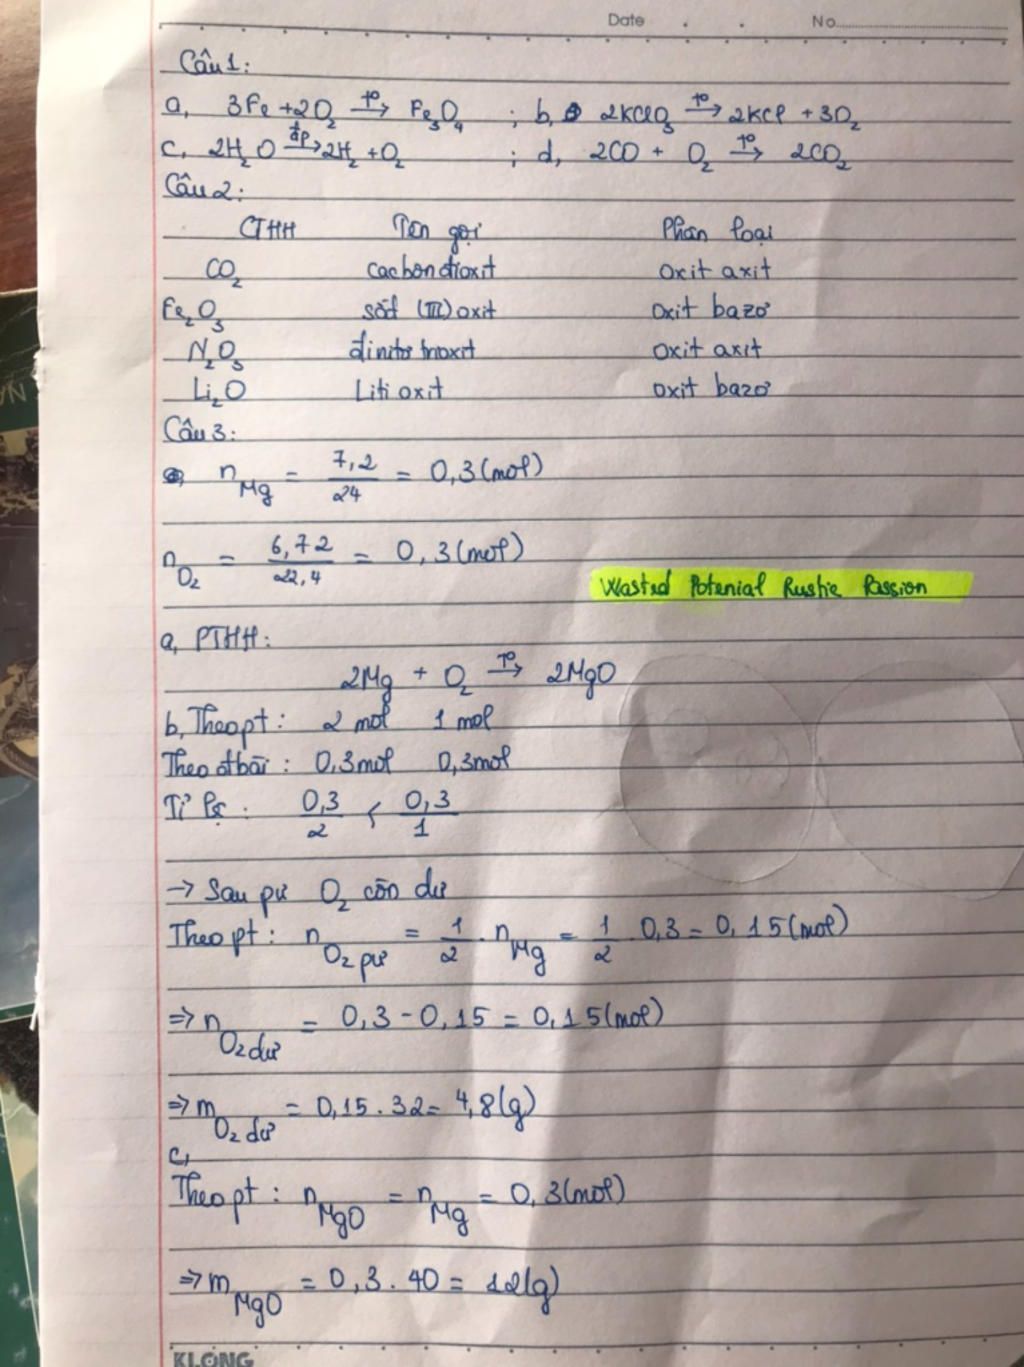 Date . . No
Câu 1:
a, 3Fe + 2O₂ →(t°) Fe₃O₄ ; b, 2KClO₃ →(t°) 2KCl + 3O₂
c, 2H₂O →(đp) 2H₂ + O₂ ; d, 2CO + O₂ →(t°) 2CO₂
Câu 2:
CTHH Tên gọi Phân loại
CO₂ cacbon đioxit oxit axit
Fe₂O₃ sắt (III) oxit Oxit bazơ
N₂O₃ đinitơ trioxit oxit axit
Li₂O Liti oxit oxit bazơ
Câu 3:
n_Mg = 7,2/24 = 0,3 (mol)
n_O₂ = 6,72/22,4 = 0,3 (mol)
Wasted Potenial Rustic Passion
a, PTHH:
2Mg + O₂ →(t°) 2MgO
b, Theo pt : 2 mol 1 mol
Theo đbài : 0,3mol 0,3mol
Tỉ lệ : 0,3/2 < 0,3/1
→ Sau pư O₂ còn dư
Theo pt : n_O₂ pư = 1/2 . n_Mg = 1/2 . 0,3 = 0,15 (mol)
⇒ n_O₂ dư = 0,3 - 0,15 = 0,15 (mol)
⇒ m_O₂ dư = 0,15 . 32 = 4,8 (g)
c,
Theo pt : n_MgO = n_Mg = 0,3 (mol)
⇒ m_MgO = 0,3 . 40 = 12 (g)
KLONG